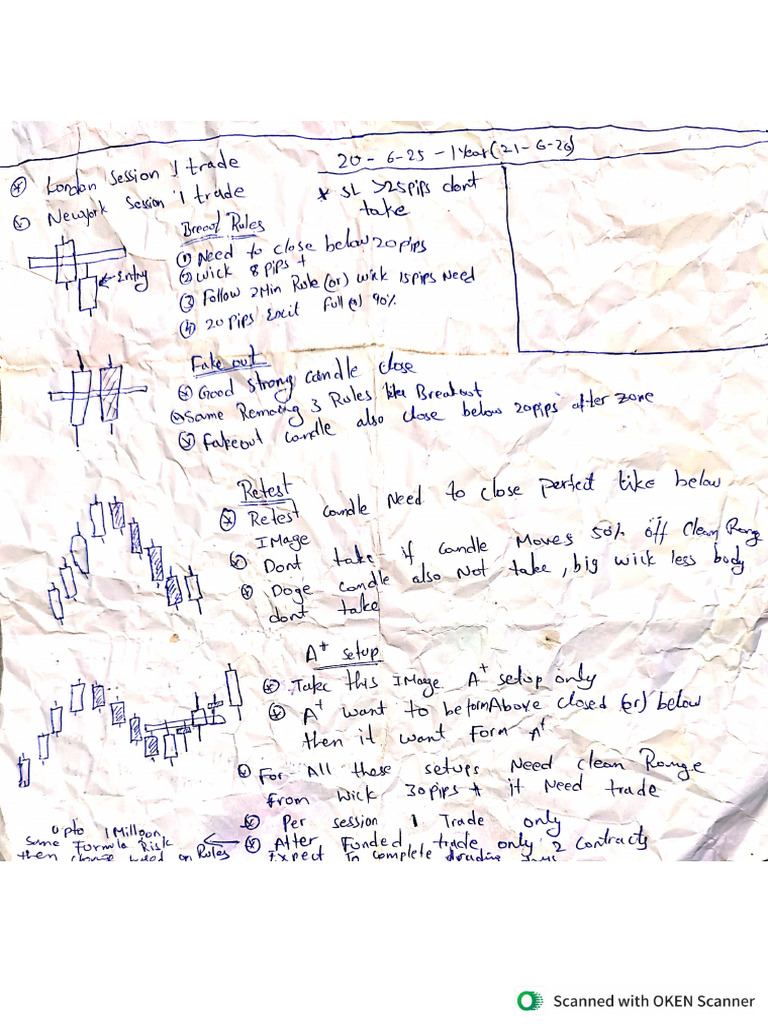 20 - 6-25 - 1 Year (21-6-26)
London session 1 trade
Newyork session 1 trade
* SL >25pips dont
take
Breoot Rules
① Need to close below 20pips
② Wick 8pips +
③ Follow 2Min Rule (or) wick 15pips Need
④ 20pips Excit Full (or) 90%
Entry
Fake out
Good strong candle close
Same Remaing 3 Rules like Breakout
Fakeout candle also close below 20pips after zone
Retest
Retest candle Need to close perfect like below
IMage
Dont take if candle Moves 50% off Clean Rang
Doge candle also Not take, big wick less body
dont take
A+ setup
Take this IMage A+ setup only
A+ want to beformAbove closed (or) below
then it want Form A+
For All these setups Need clean Range
from wick 30pips + it Need trade
Per session 1 Trade only
After Funded trade only 2 contracts
Expect To complete
upto 1 Milloon
Same Formula Risk
then Rules
Scanned with OKEN Scanner